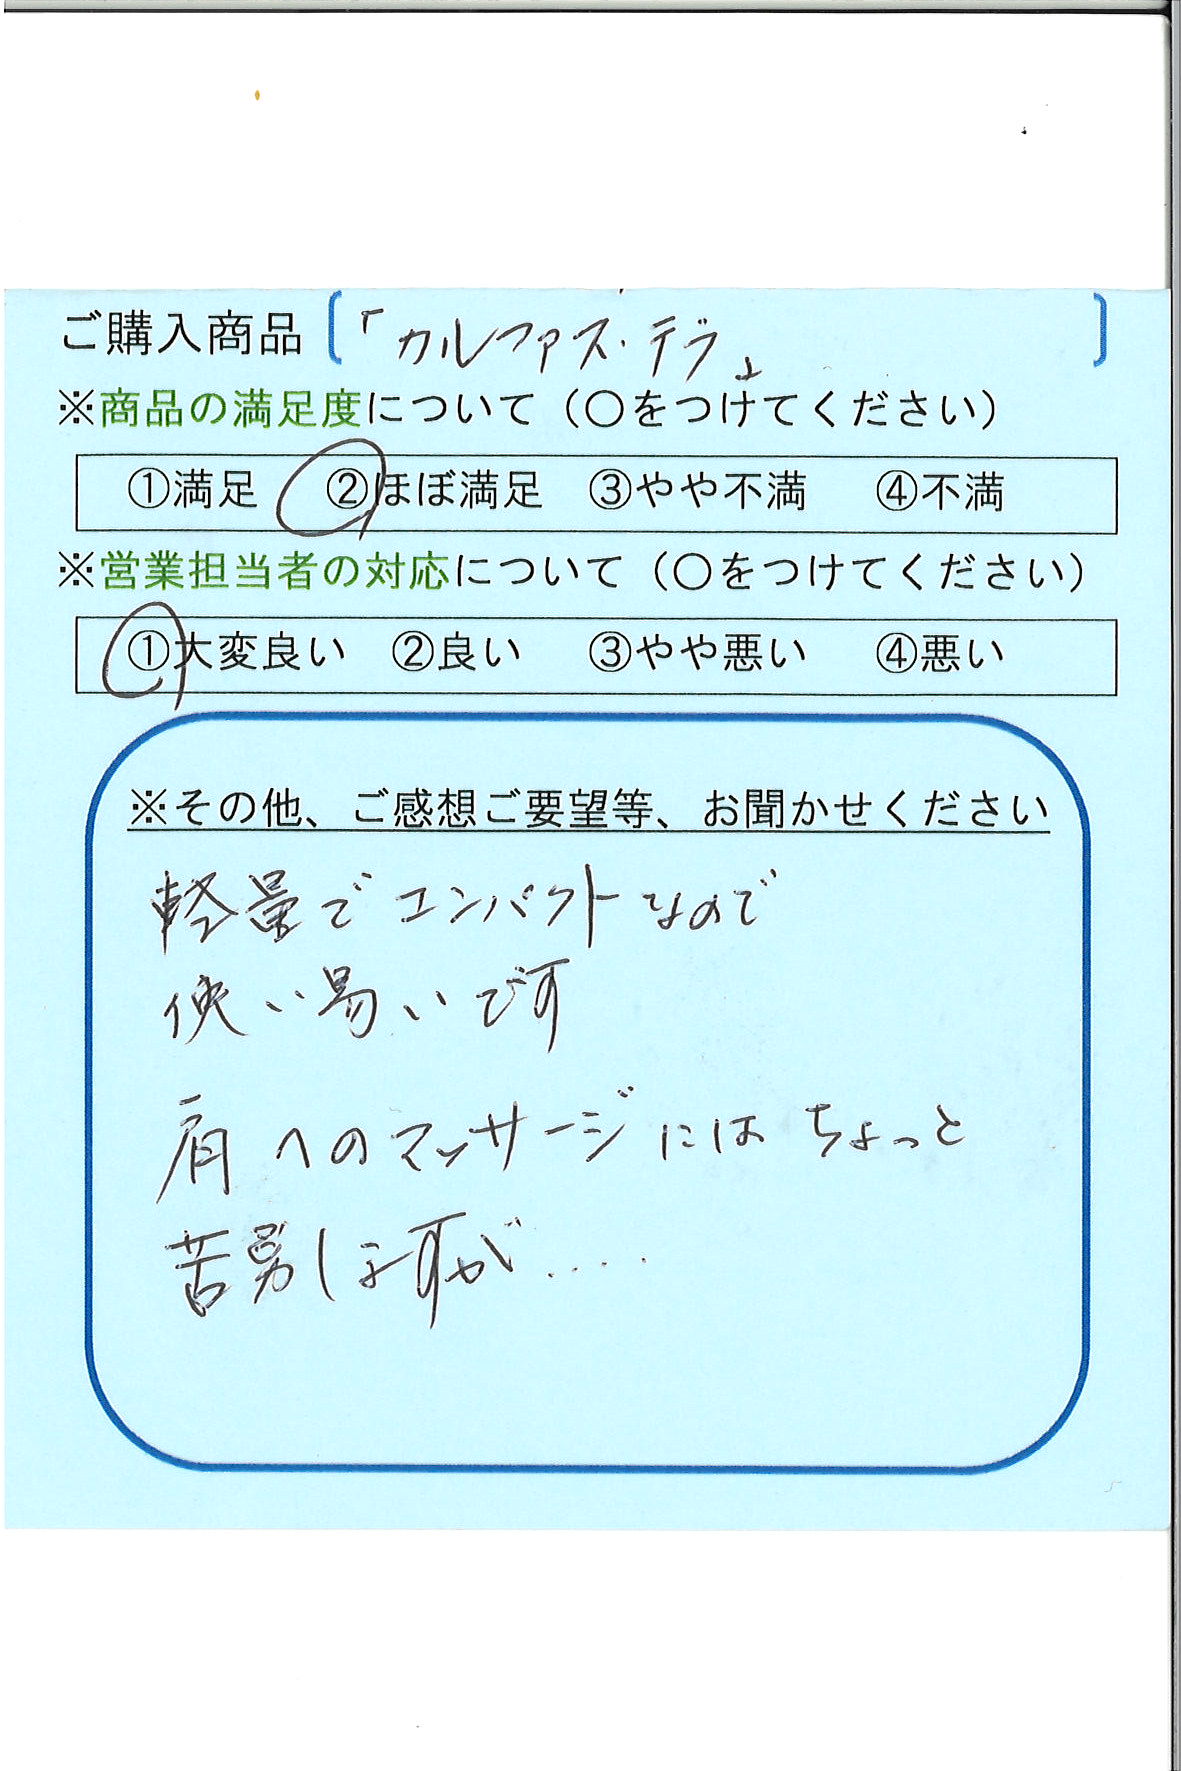 ご購入商品 [「カルファス・テラ」]
※商品の満足度について（○をつけてください）
①満足 ②ほぼ満足 ③やや不満 ④不満
※営業担当者の対応について（○をつけてください）
①大変良い ②良い ③やや悪い ④悪い
※その他、ご感想ご要望等、お聞かせください
軽量でコンパクトなので
使い易いです
肩へのマッサージにはちょっと
苦労しますが....